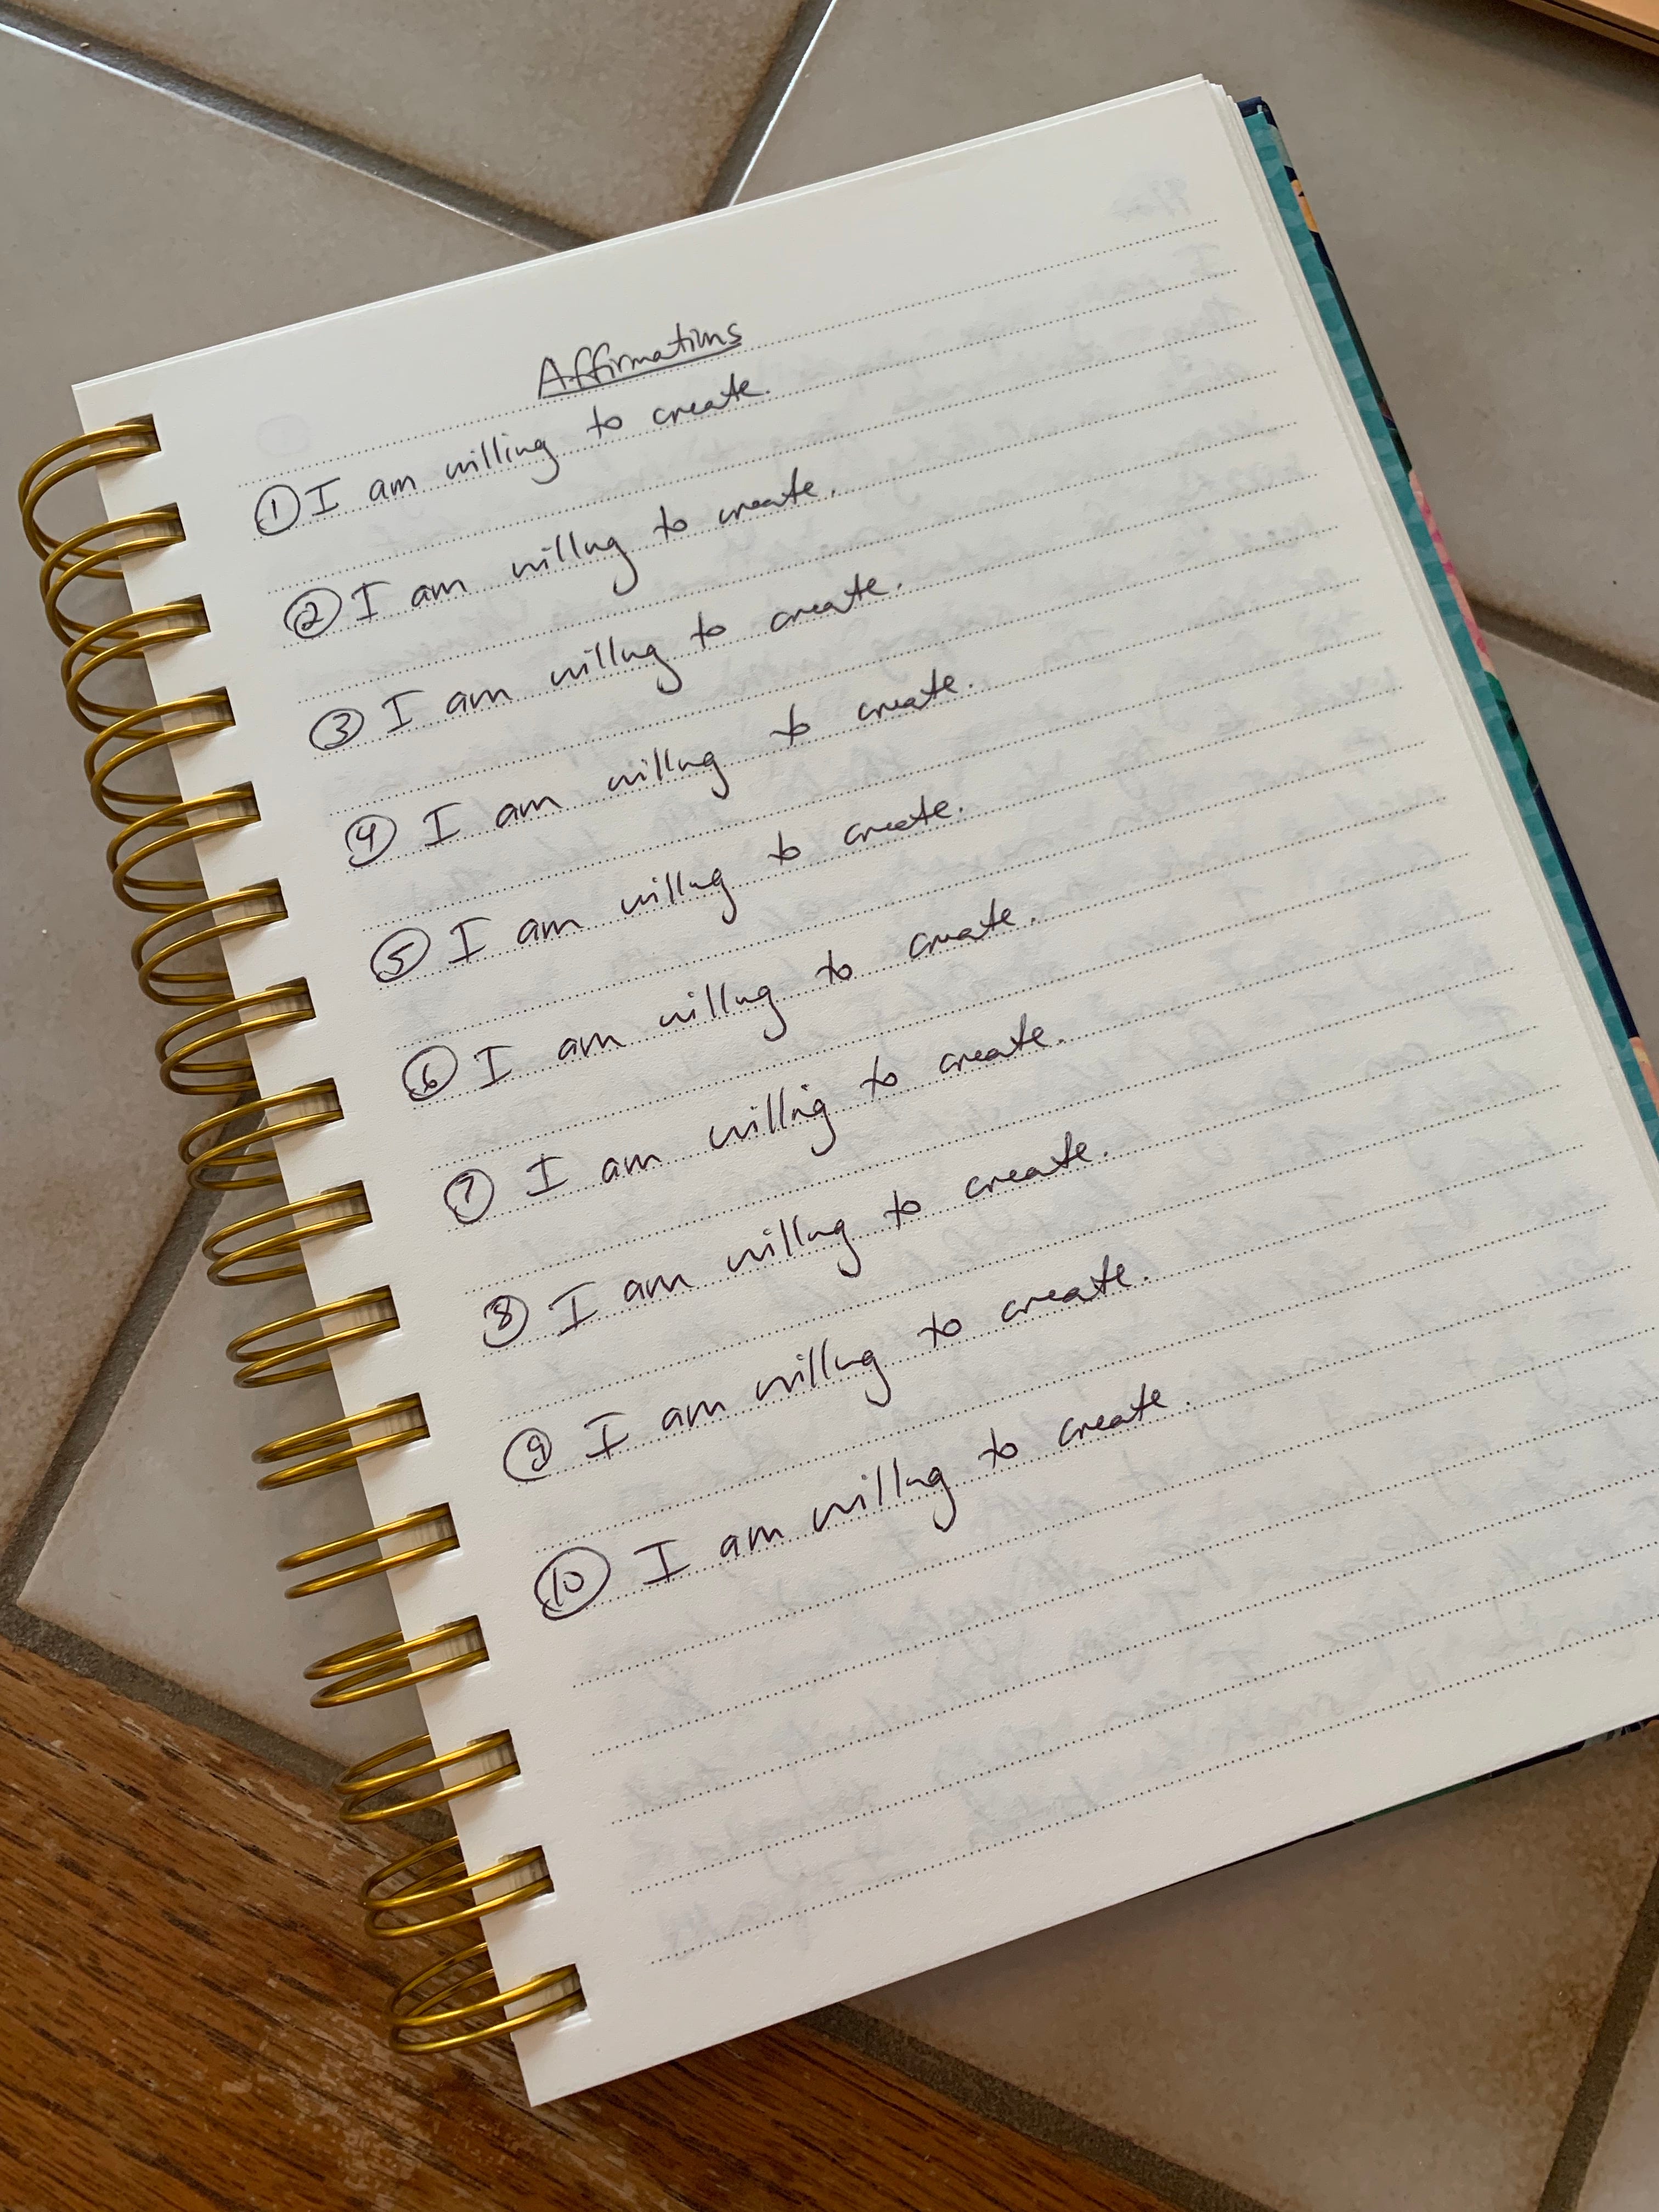 Affirmations
① I am willing to create.
② I am willing to create.
③ I am willing to create.
④ I am willing to create.
⑤ I am willing to create.
⑥ I am willing to create.
⑦ I am willing to create.
⑧ I am willing to create.
⑨ I am willing to create.
⑩ I am willing to create.